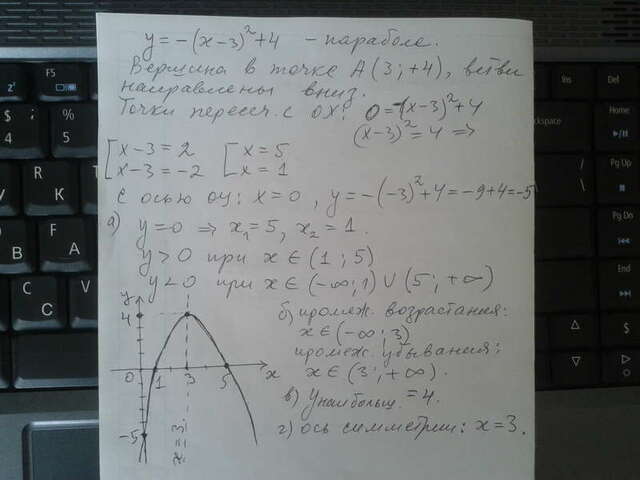 y = -(x-3)²+4 - парабола.
Вершина в точке A(3;+4), ветви
направлены вниз.
Точки пересеч. с OX: 0=-(x-3)²+4
(x-3)²=4 =>
[x-3=2 [x=5
[x-3=-2 [x=1
С осью oy: x=0, y=-(-3)²+4=-9+4=-5
а) y=0 => x₁=5, x₂=1.
y>0 при x∈(1;5)
y<0 при x∈(-∞;1)∪(5;+∞)
б) промеж. возрастания:
x∈(-∞;3)
промеж. убывания:
x∈(3;+∞).
в) yнаибольш.=4.
г) ось симметрии: x=3.
y
4
0 1 3 5 x
-5
x=3
F5
$
4
%
5
R
F
D
C
Ins
Del
Home
Pg Up
Pg Dn
End
kspace
Shift